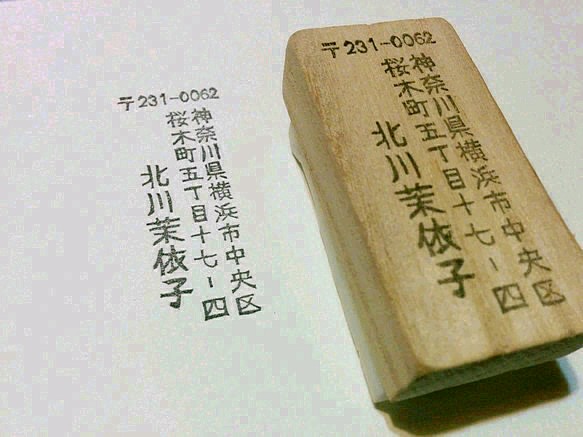 〒231-0062
神奈川県横浜市中央区
桜木町五丁目十七-四
北川茉依子
〒231-0062
神奈川県横浜市中央区
桜木町五丁目十七-四
北川茉依子